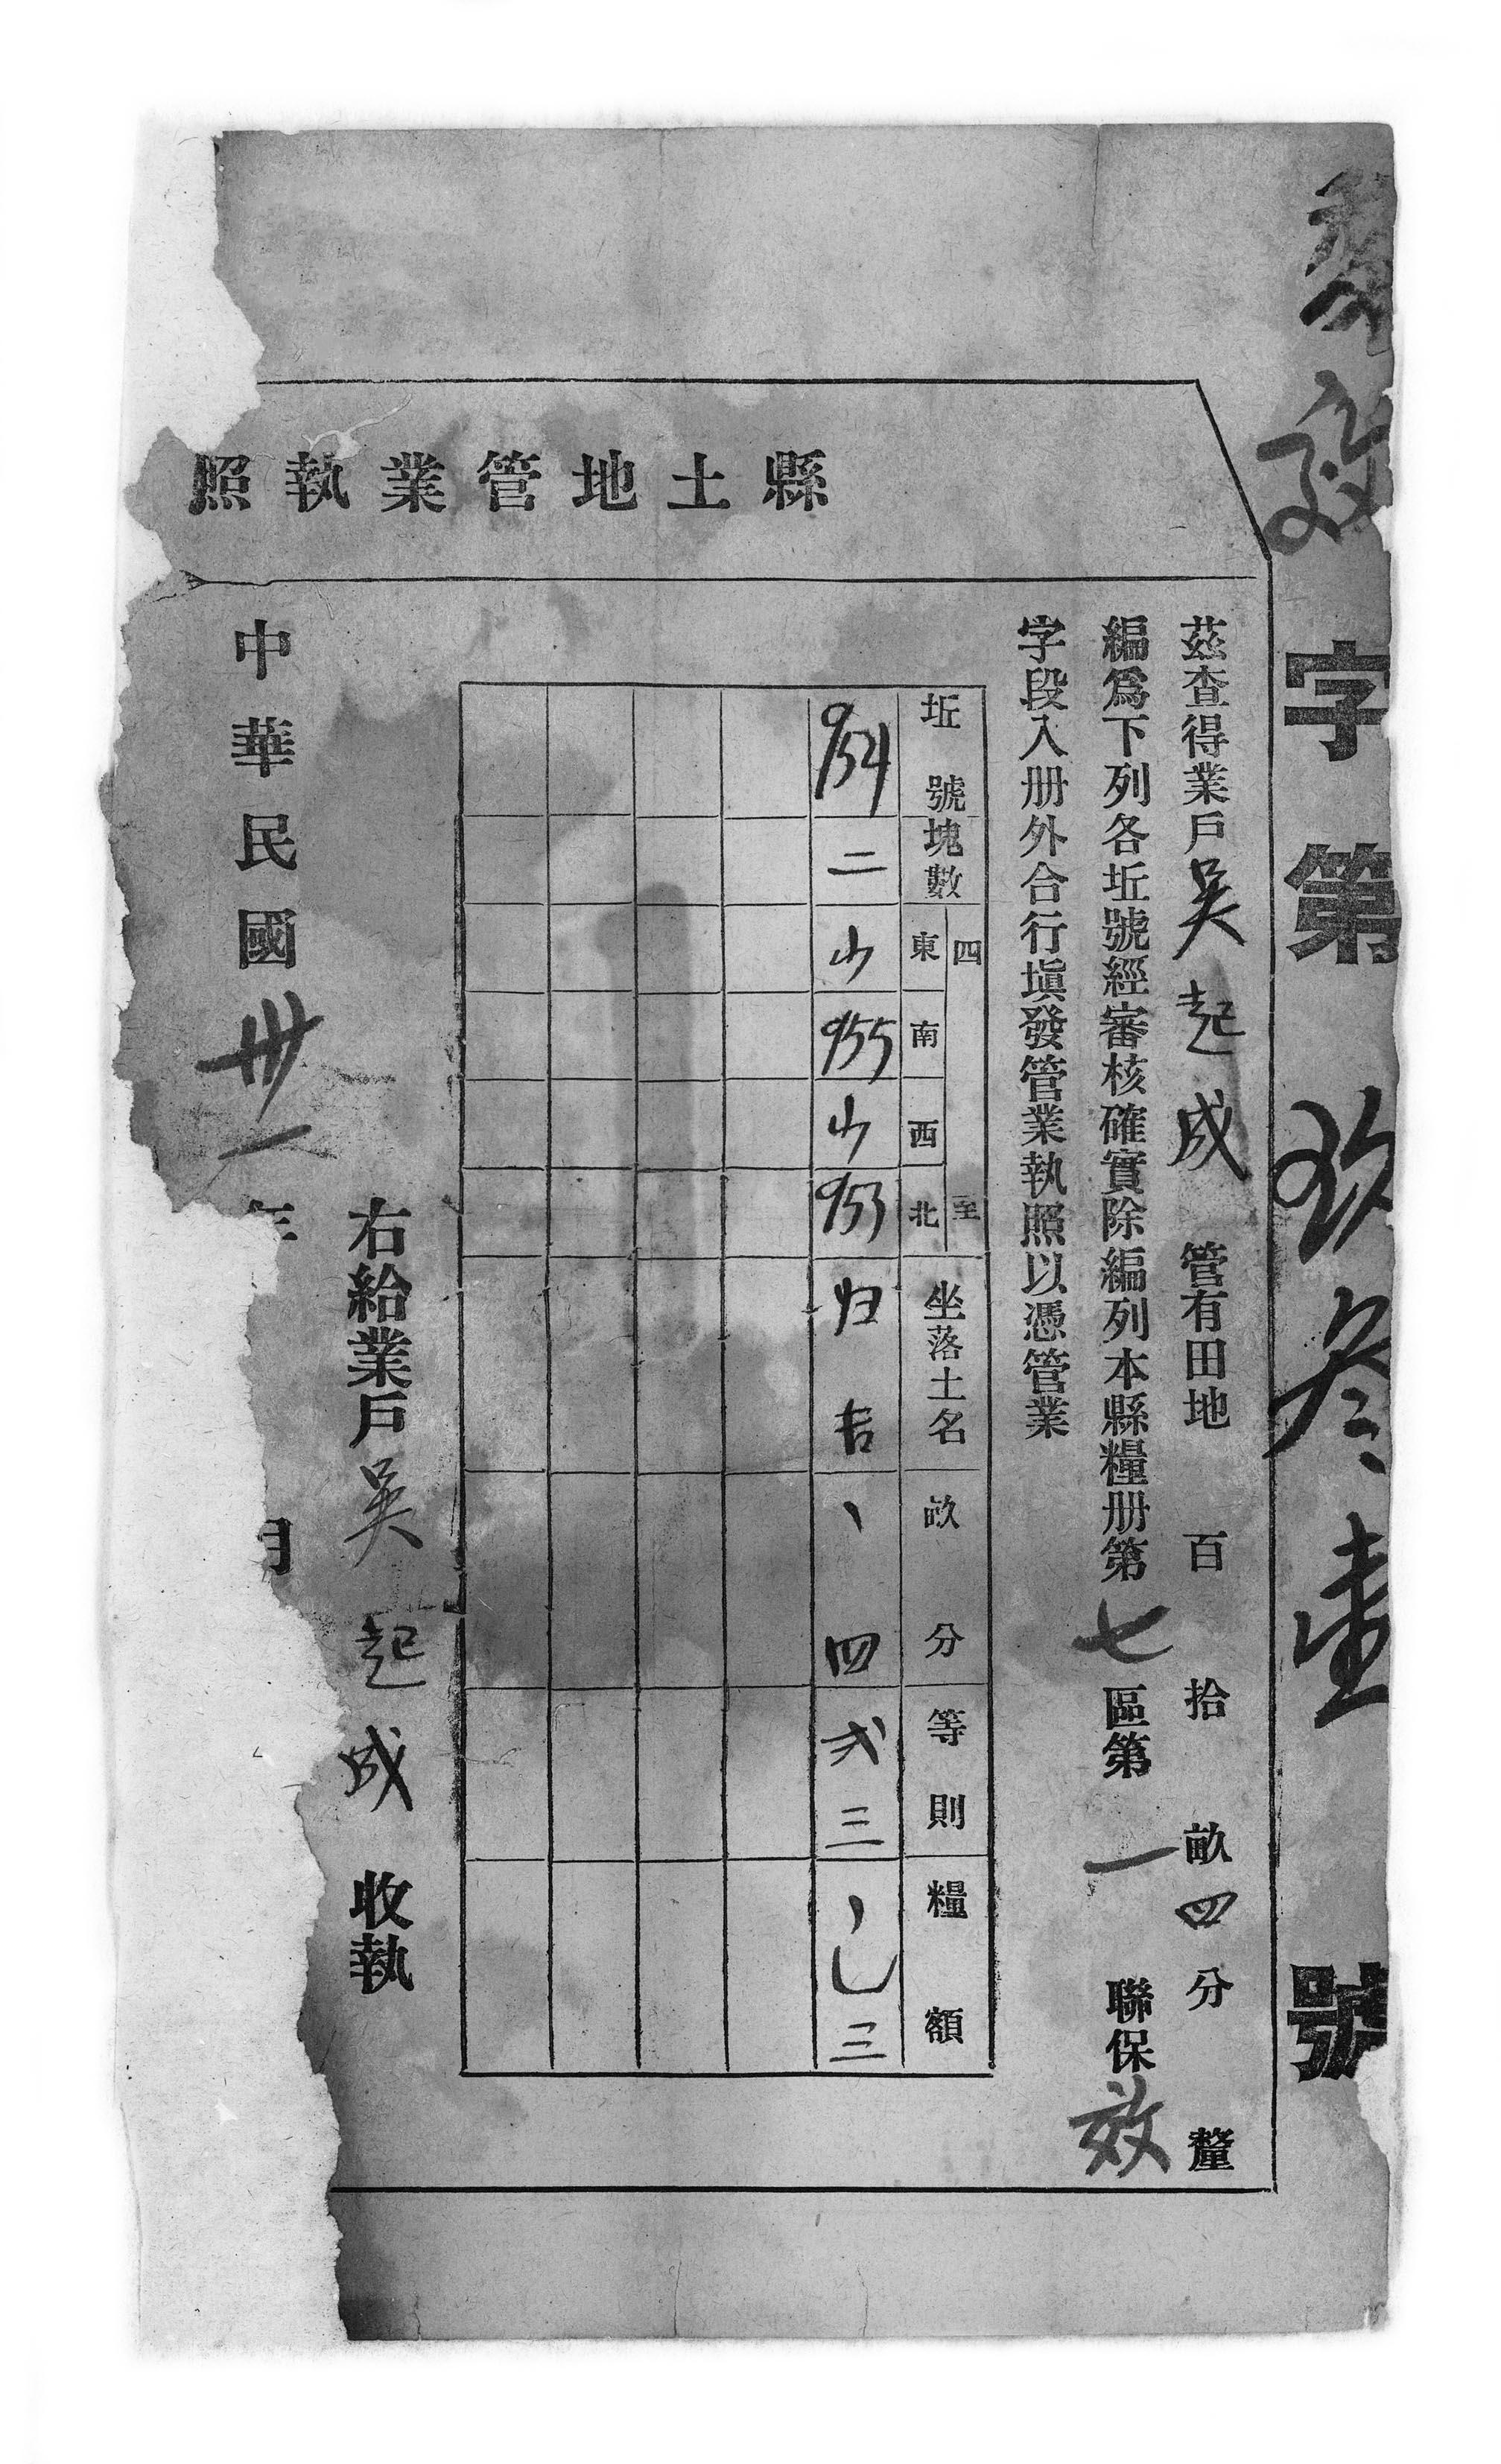 效字第玖叁壹號
縣土地管業執照
茲查得業戶吳起成管有田地百拾畝四分釐
編爲下列各坵號經審核確實除編列本縣糧册第七區第一聯保效
字段入册外合行塡發管業執照以憑管業
坵號 塊數 四至 東 南 西 北 坐落土名 畝分 等則 糧額
954 二 山 955 山 953 归 、四 弍三 、乚三
右給業戶吳起成收執
中華民國卅一年月